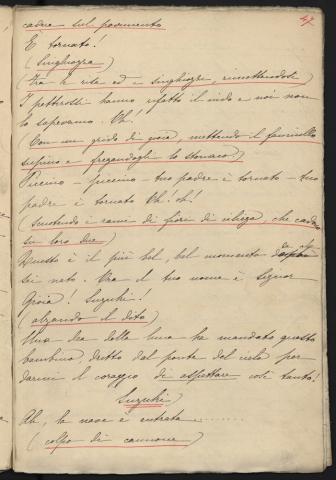 cadere sul pavimento
47
È tornato!
(Singhiozza)
(Tra le risa ed i singhiozzi, rimettendosi)
I pettirossi hanno rifatto il nido e noi non
lo sapevamo. Oh!
(Con un grido di gioia, mettendo il fanciullo
supino e fregandogli lo stomaco)
Piccino - piccino - tuo padre è tornato - tuo
padre è tornato Oh! oh!
(scuotendo i rami di fiori di ciliegia, che cadono
su loro due)
Questo è il più bel, bel momento da che
sei nato. Ora il tuo nome è Signor
Gioia! Suzuki!
(alzando il dito)
Una dea della luna ha mandato questo
bambino, diretto dal ponte del cielo per
darmi il coraggio di aspettare così tanto!
Suzuki
Ah, la nave è entrata ..........
(colpo di cannone)